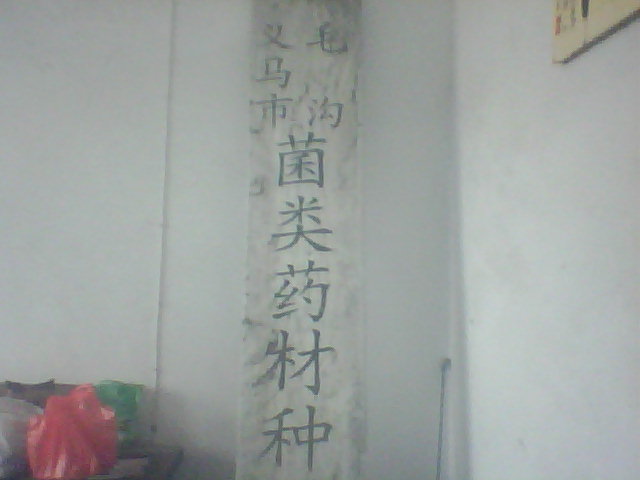 义马市
毛沟
菌类药材种